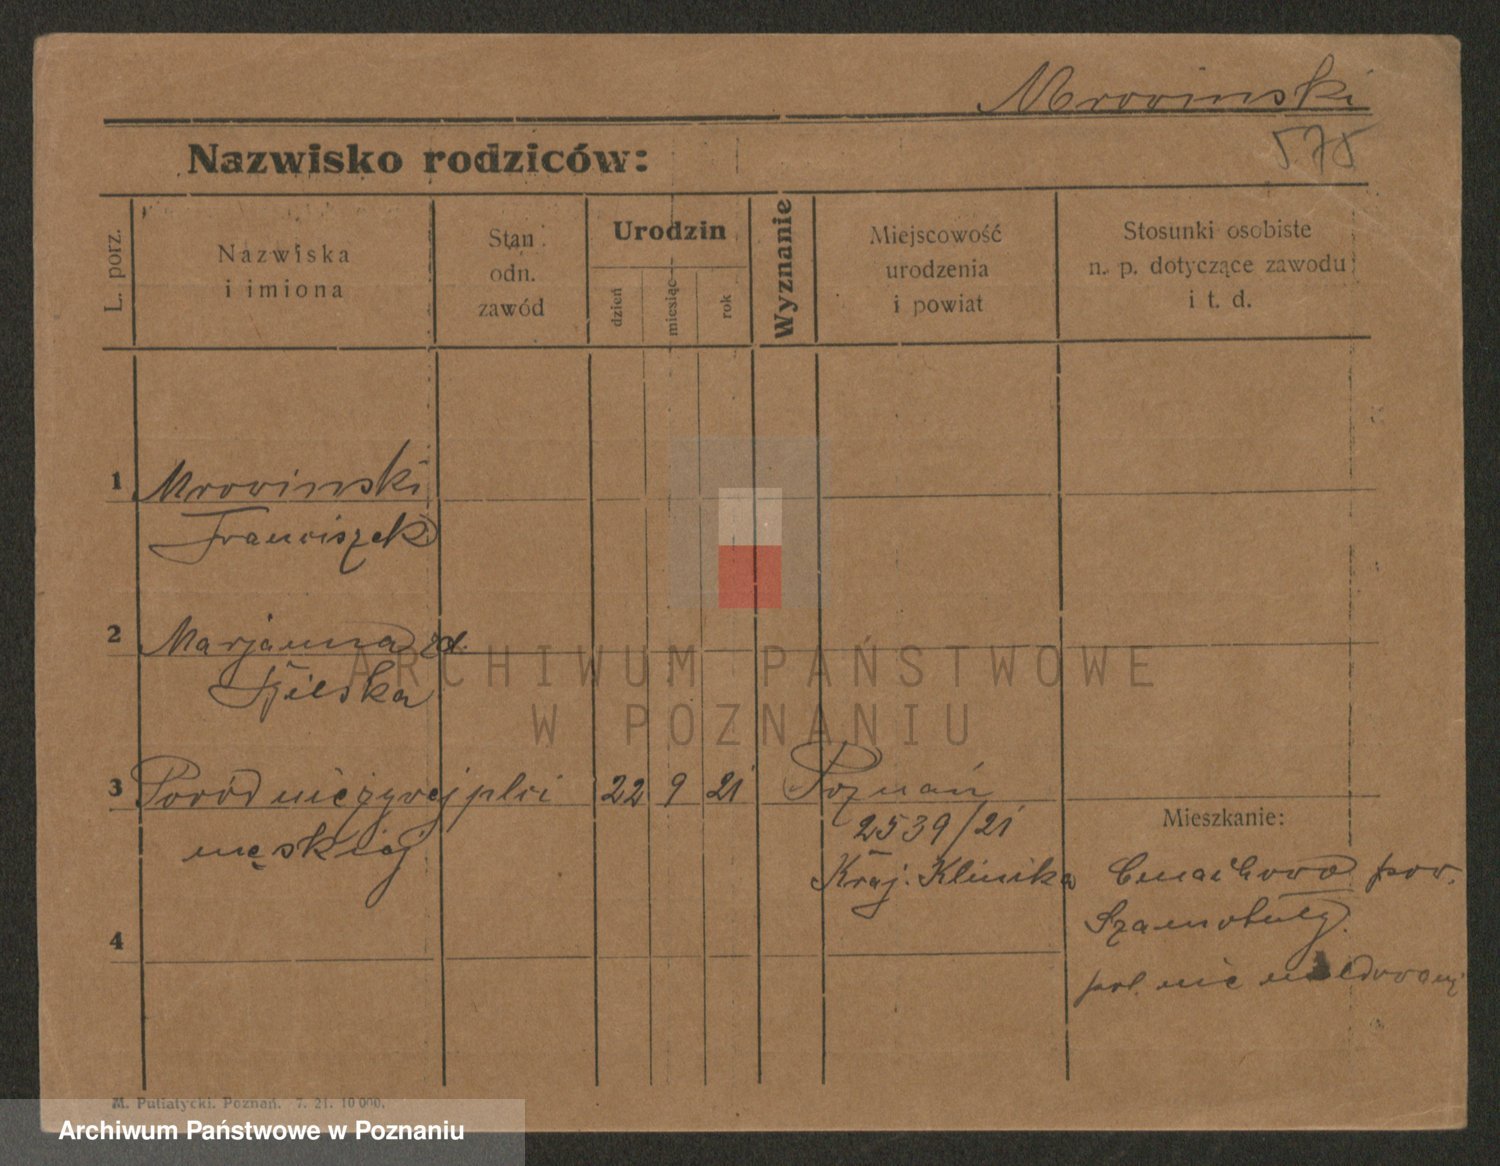 Mrowinski
575
Nazwisko rodziców:
L. porz.
Nazwiska
i imiona
Stan
odn.
zawód
Urodzin
dzień
miesiąc
rok
Wyznanie
Miejscowość
urodzenia
i powiat
Stosunki osobiste
n. p. dotyczące zawodu
i t. d.
1 Mrowinski
Franciszek
2 Marjanna zd.
3 Poród nieżywej płci 22 9 21 Poznań
męskiej
2539/21
Kraj. Klinika
Mieszkanie:
pow.
Szamotuły.
4
pol. nie meldowany
M. Putiatycki. Poznań. 7. 21. 10 000.
ARCHIWUM PAŃSTWOWE
W POZNANIU
Archiwum Państwowe w Poznaniu